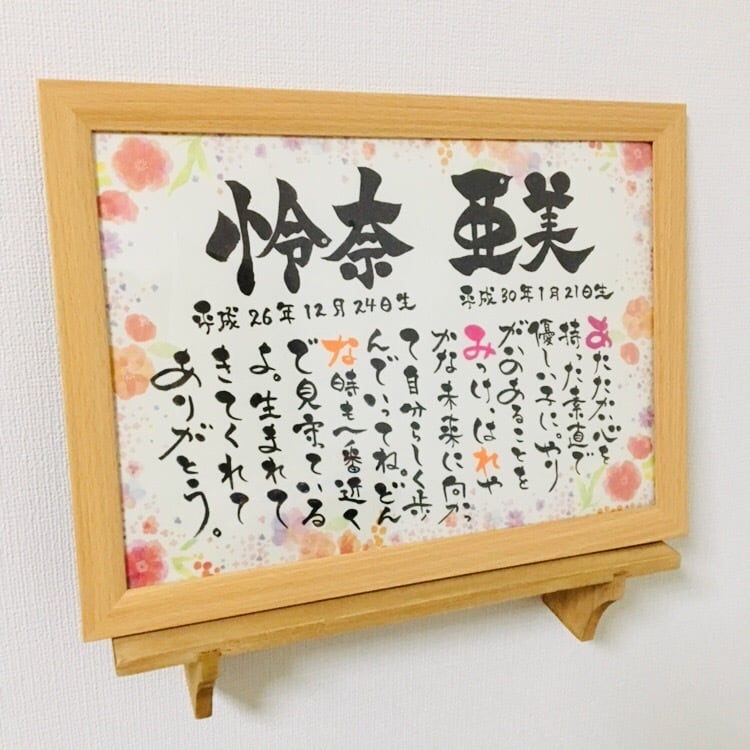 怜奈 亜美
平成26年12月24日生 平成30年1月21日生
あたたかい心を
持った素直で
優しい子に。やり
がいのあることを
みつけ、はれや
かな未来に向かっ
て自分らしく歩
んでいってね。どん
な時も一番近く
で見守っている
よ。生まれて
きてくれて
ありがとう。